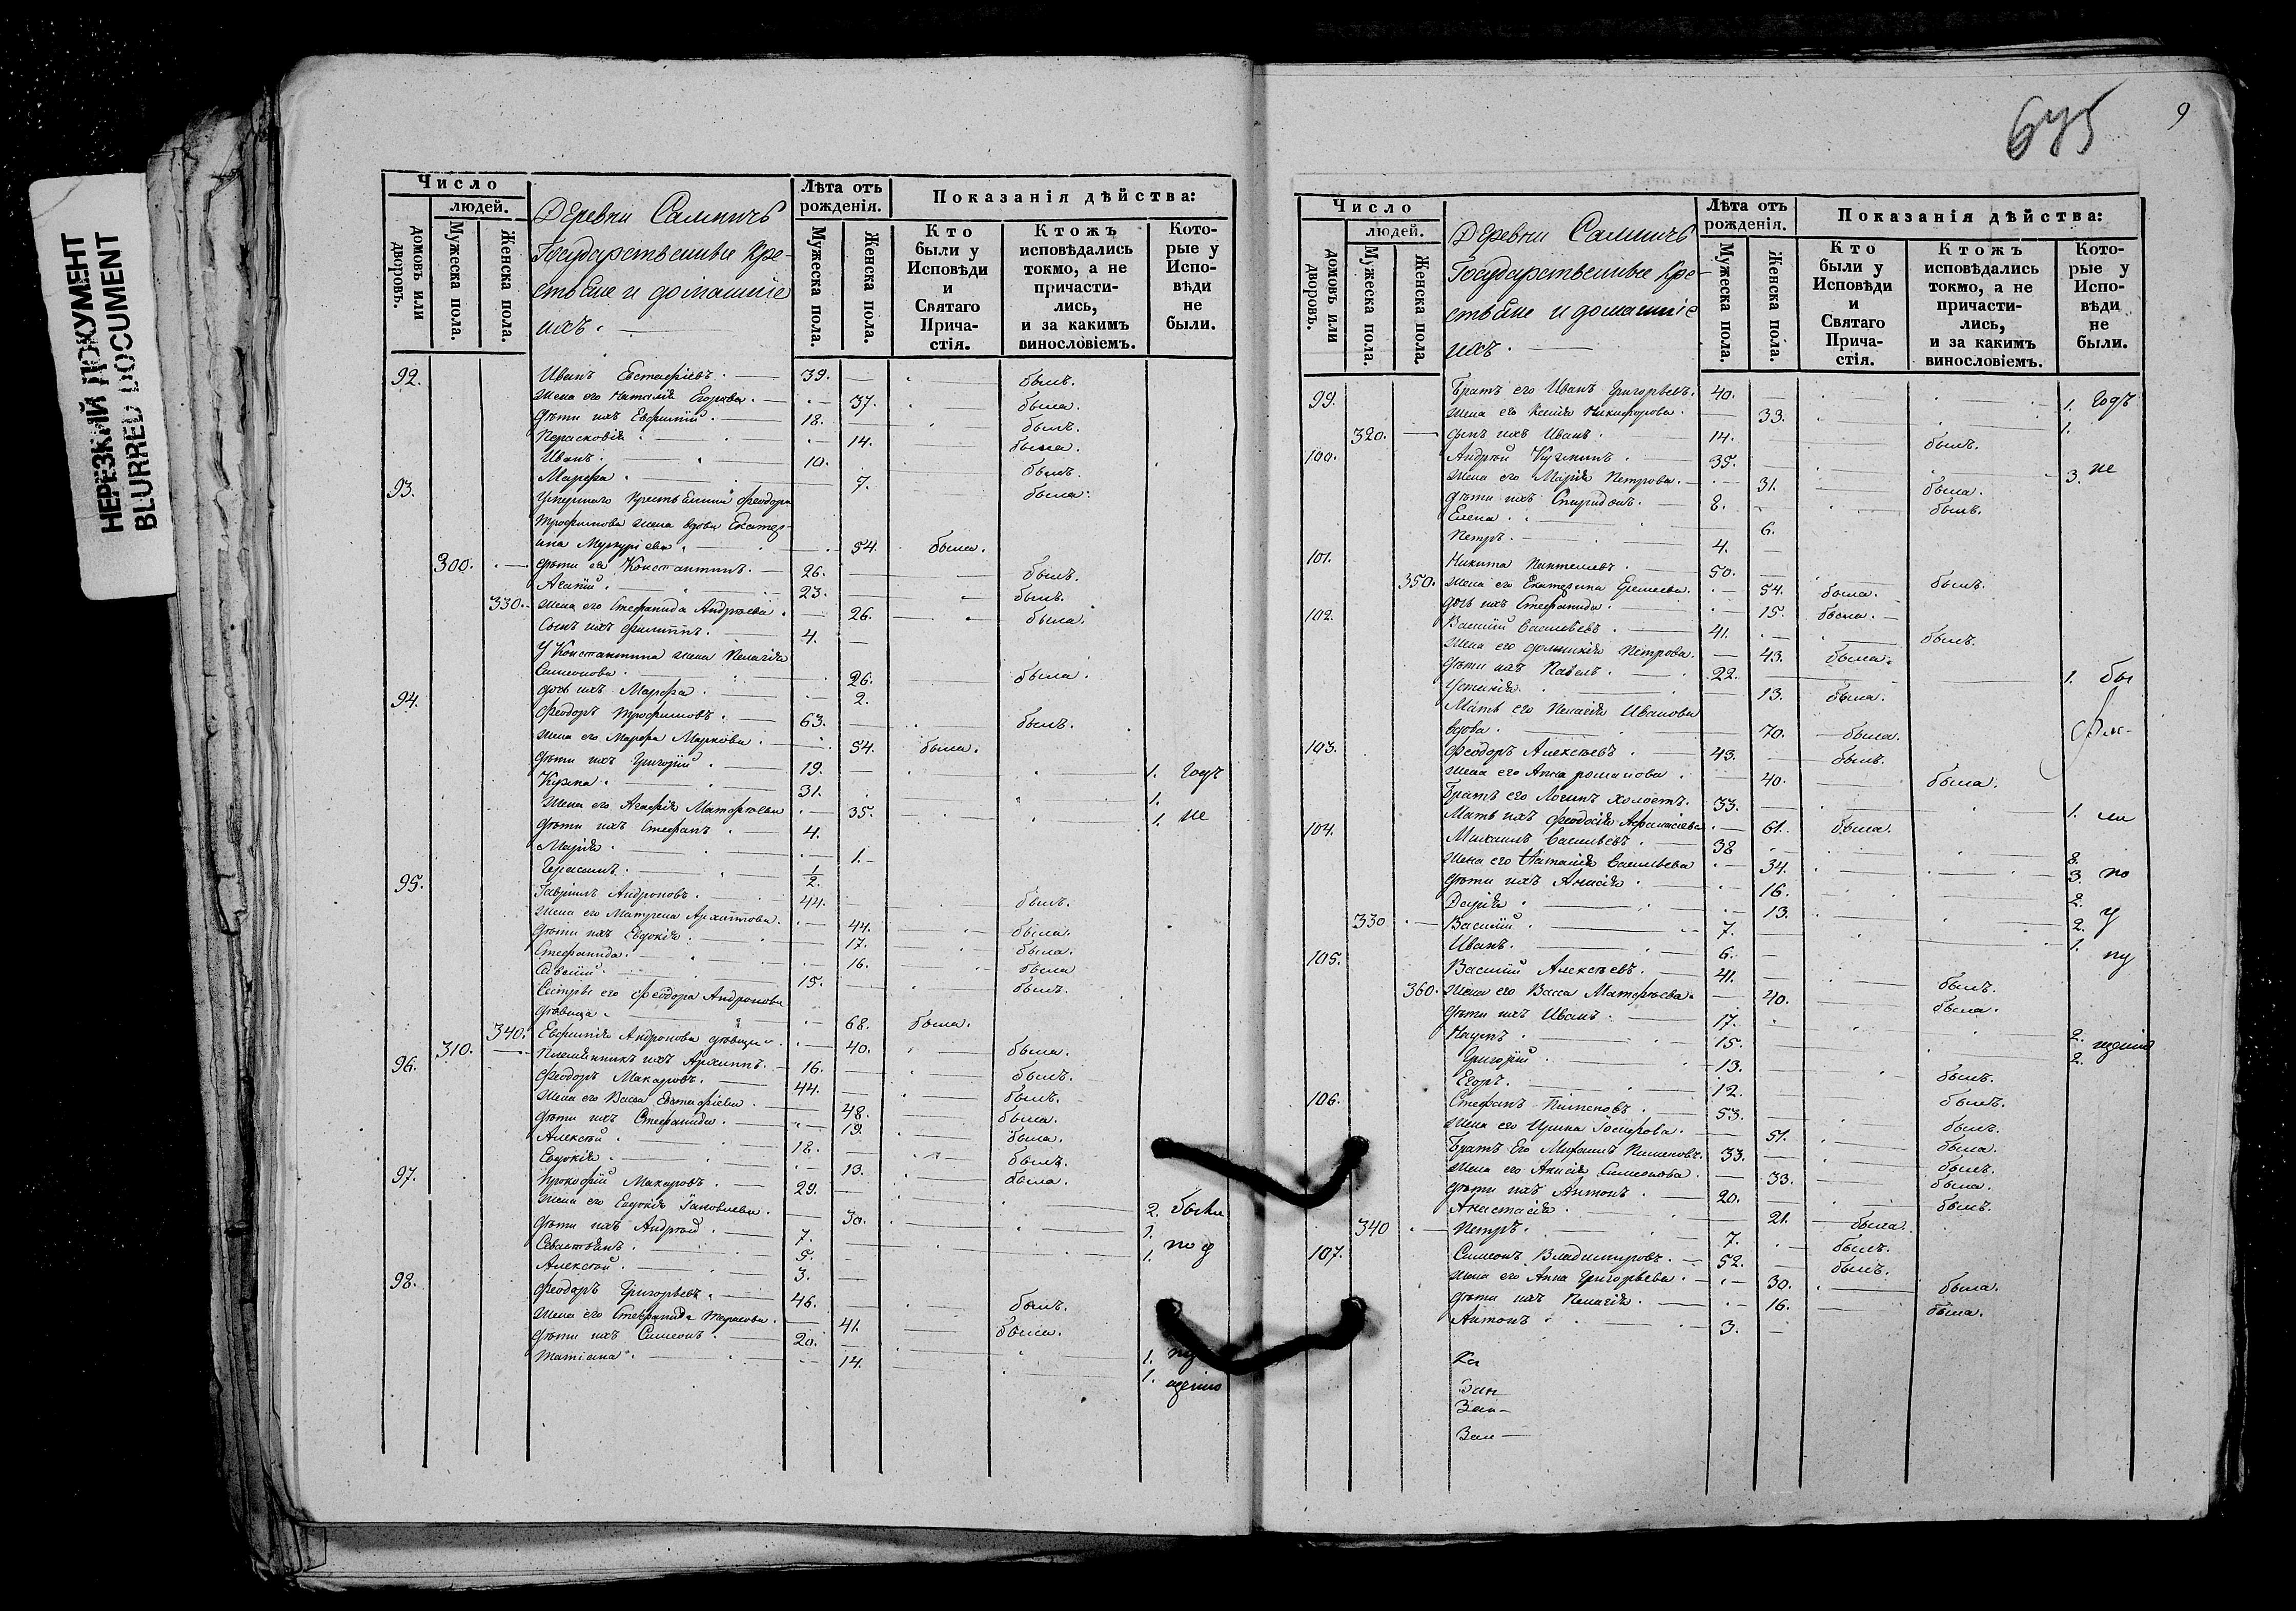 НЕРЕЗКИЙ ДОКУМЕНТ
BLURRED DOCUMENT
Число
людей.
домовъ или дворовъ.
Мужеска пола.
Женска пола.
Деревни
Государственные Кре-
стьяне и домашніе
ихъ.
Лѣта отъ рожденія.
Мужеска пола.
Женска пола.
Показанія дѣйства:
Кто были у Исповѣди и Святаго Прича-стія.
Ктожъ исповѣдались токмо, а не причасти-лись, и за какимъ винословіемъ.
Кото-рые у Испо-вѣди не были.
92. Иванъ Евстафіевъ. 39. былъ.
жена его Наталія Егорова. 37. была.
дѣти ихъ Евфимій. 18. былъ.
Парасковія 14. была.
Иванъ. 10. былъ.
Марфа 7. была.
93. Умершаго крестьянина Феодора
Трофимова жена вдова Екатер-
ина Меркуріева 54. была.
300. дѣти ея Константинъ. 26. былъ.
23. былъ.
330. жена его Стефанида Андреева. 26. была.
Сынъ ихъ Филиппъ. 4.
У Константина жена Пелагія
Симеонова. 26. была.
дочь ихъ Марфа. 2.
94. Феодоръ Трофимовъ. 63. былъ.
жена его Марфа Маркова. 54. была.
дѣти ихъ Григорій. 19. 1. годъ
Кузма 31. 1.
жена его Агафія Матфѣева 35. 1. не
дѣти ихъ Стефанъ. 4.
Марія 1.
Герасимъ. 1/2.
95. Гавріилъ Андроновъ. 44. былъ.
жена его Матрена Архиппова. 44. была.
дѣти ихъ Евдокія. 17. была.
Стефанида. 16. была
Савелій. 15. былъ.
Сестры его Феодора Андронова
дѣвица 68. была.
340. Евфимія Андронова дѣвица 40. была.
310. Племянникъ ихъ Архиппъ. 16. былъ.
96. Феодоръ Макаровъ. 44. былъ.
жена его Васса Евстафіева 48. была.
дѣти ихъ Стефанида. 19. была.
Алексѣй 18. былъ.
Евдокія 13. была.
97. Прокофій Макаровъ. 29. 2. были
жена его Евдокія Іаковлева. 30. 1.
дѣти ихъ Андрей 7. 1. по д
Севастьянъ. 5.
Алексѣй. 3.
98. Феодоръ Григорьевъ 46. былъ.
жена его Стефанида Тарасова. 41. была.
дѣти ихъ Симеонъ. 20. 1.
Татіана. 14. 1. щенію
9
Число
людей.
домовъ или дворовъ.
Мужеска пола.
Женска пола.
Деревни
Государственные Кре-
стьяне и домашніе
ихъ.
Лѣта отъ рожденія.
Мужеска пола.
Женска пола.
Показанія дѣйства:
Кто были у Исповѣди и Святаго Прича-стія.
Ктожъ исповѣдались токмо, а не причасти-лись, и за какимъ винословіемъ.
Кото-рые у Испо-вѣди не были.
99. Братъ его Иванъ Григорьевъ. 40. 1. годъ
жена его Ксенія Никифорова. 33. 1.
320. сынъ ихъ Иванъ. 14. былъ.
100. Андрей Кузминъ. 35. 3. не
жена его Марія Петрова. 31. была.
дѣти ихъ Спиридонъ. 8. былъ.
Елена. 6.
Петръ. 4.
101. Никита Пантелеевъ. 50. былъ.
350. жена его Екатерина Еремеева. 54. была.
дочь ихъ Стефанида. 15. была.
102. Василій Савельевъ. 41. былъ.
жена его Домникія Петрова. 43. была.
дѣти ихъ Павелъ. 22. 1. бы
Устинія. 13. была.
Мать его Пелагія Иванова
вдова. 70. была.
103. Феодоръ Алексѣевъ. 43. былъ.
жена его Анна Романова. 40. была.
Братъ его Логинъ холостъ. 33. 1. ли
Мать ихъ Феодосія Афанасіева 61. была.
104. Михаилъ Савельевъ. 38 8.
жена его Наталія Савельева 34. 3. по
дѣти ихъ Анисія. 16. 2.
Дарія 13. 2. у
330 Василій 7. 1.
Иванъ. 6. пу
105. Василій Алексѣевъ. 41. былъ.
360. жена его Васса Матфѣева. 40. была.
дѣти ихъ Иванъ. 17. 2.
Наумъ 15. 2. щенію
Григорій 13. былъ.
Егоръ. 12. былъ.
106. Стефанъ Пименовъ. 53. былъ.
жена его Ирина Іосифова. 51. была.
Братъ Его Михаилъ Пименовъ. 33. былъ.
жена его Анисія Симеонова. 33. была.
дѣти ихъ Антонъ. 20. былъ.
Анастасія 21. была.
340 Петръ. 7. былъ.
107. Симеонъ Владимировъ. 52. былъ.
жена его Анна Григорьева. 30. была.
дѣти ихъ Пелагія. 16. была.
Антонъ 3.